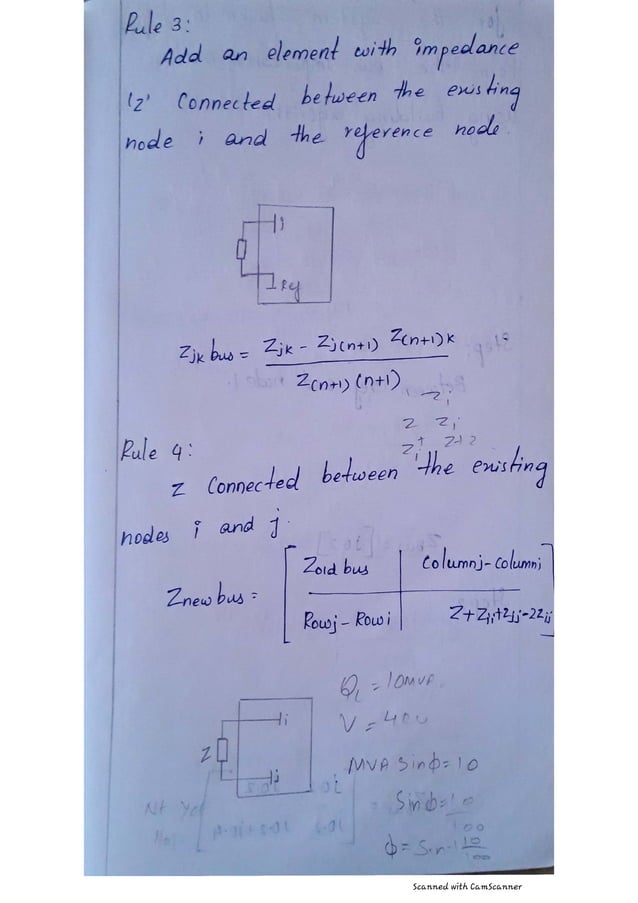 Rule 3:
Add an element with impedance
'z' Connected between the existing
node i and the reference node.
j
Ref
Zjk bus = Zjk - Zj(n+1) Z(n+1)k
Z(n+1)(n+1)
Zi
Z Zi
Rule 4:
Z Connected between the existing
nodes i and j.
Zold bus Columnj-Columni
Znew bus =
Rowj-Rowi Z+Zii+Zjj-2Zij
QL = 10MVA
V = 400
i
Z
j
MVA Sinφ = 10
Sinφ = 10
100
φ = Sin-1 10
100
Scanned with CamScanner